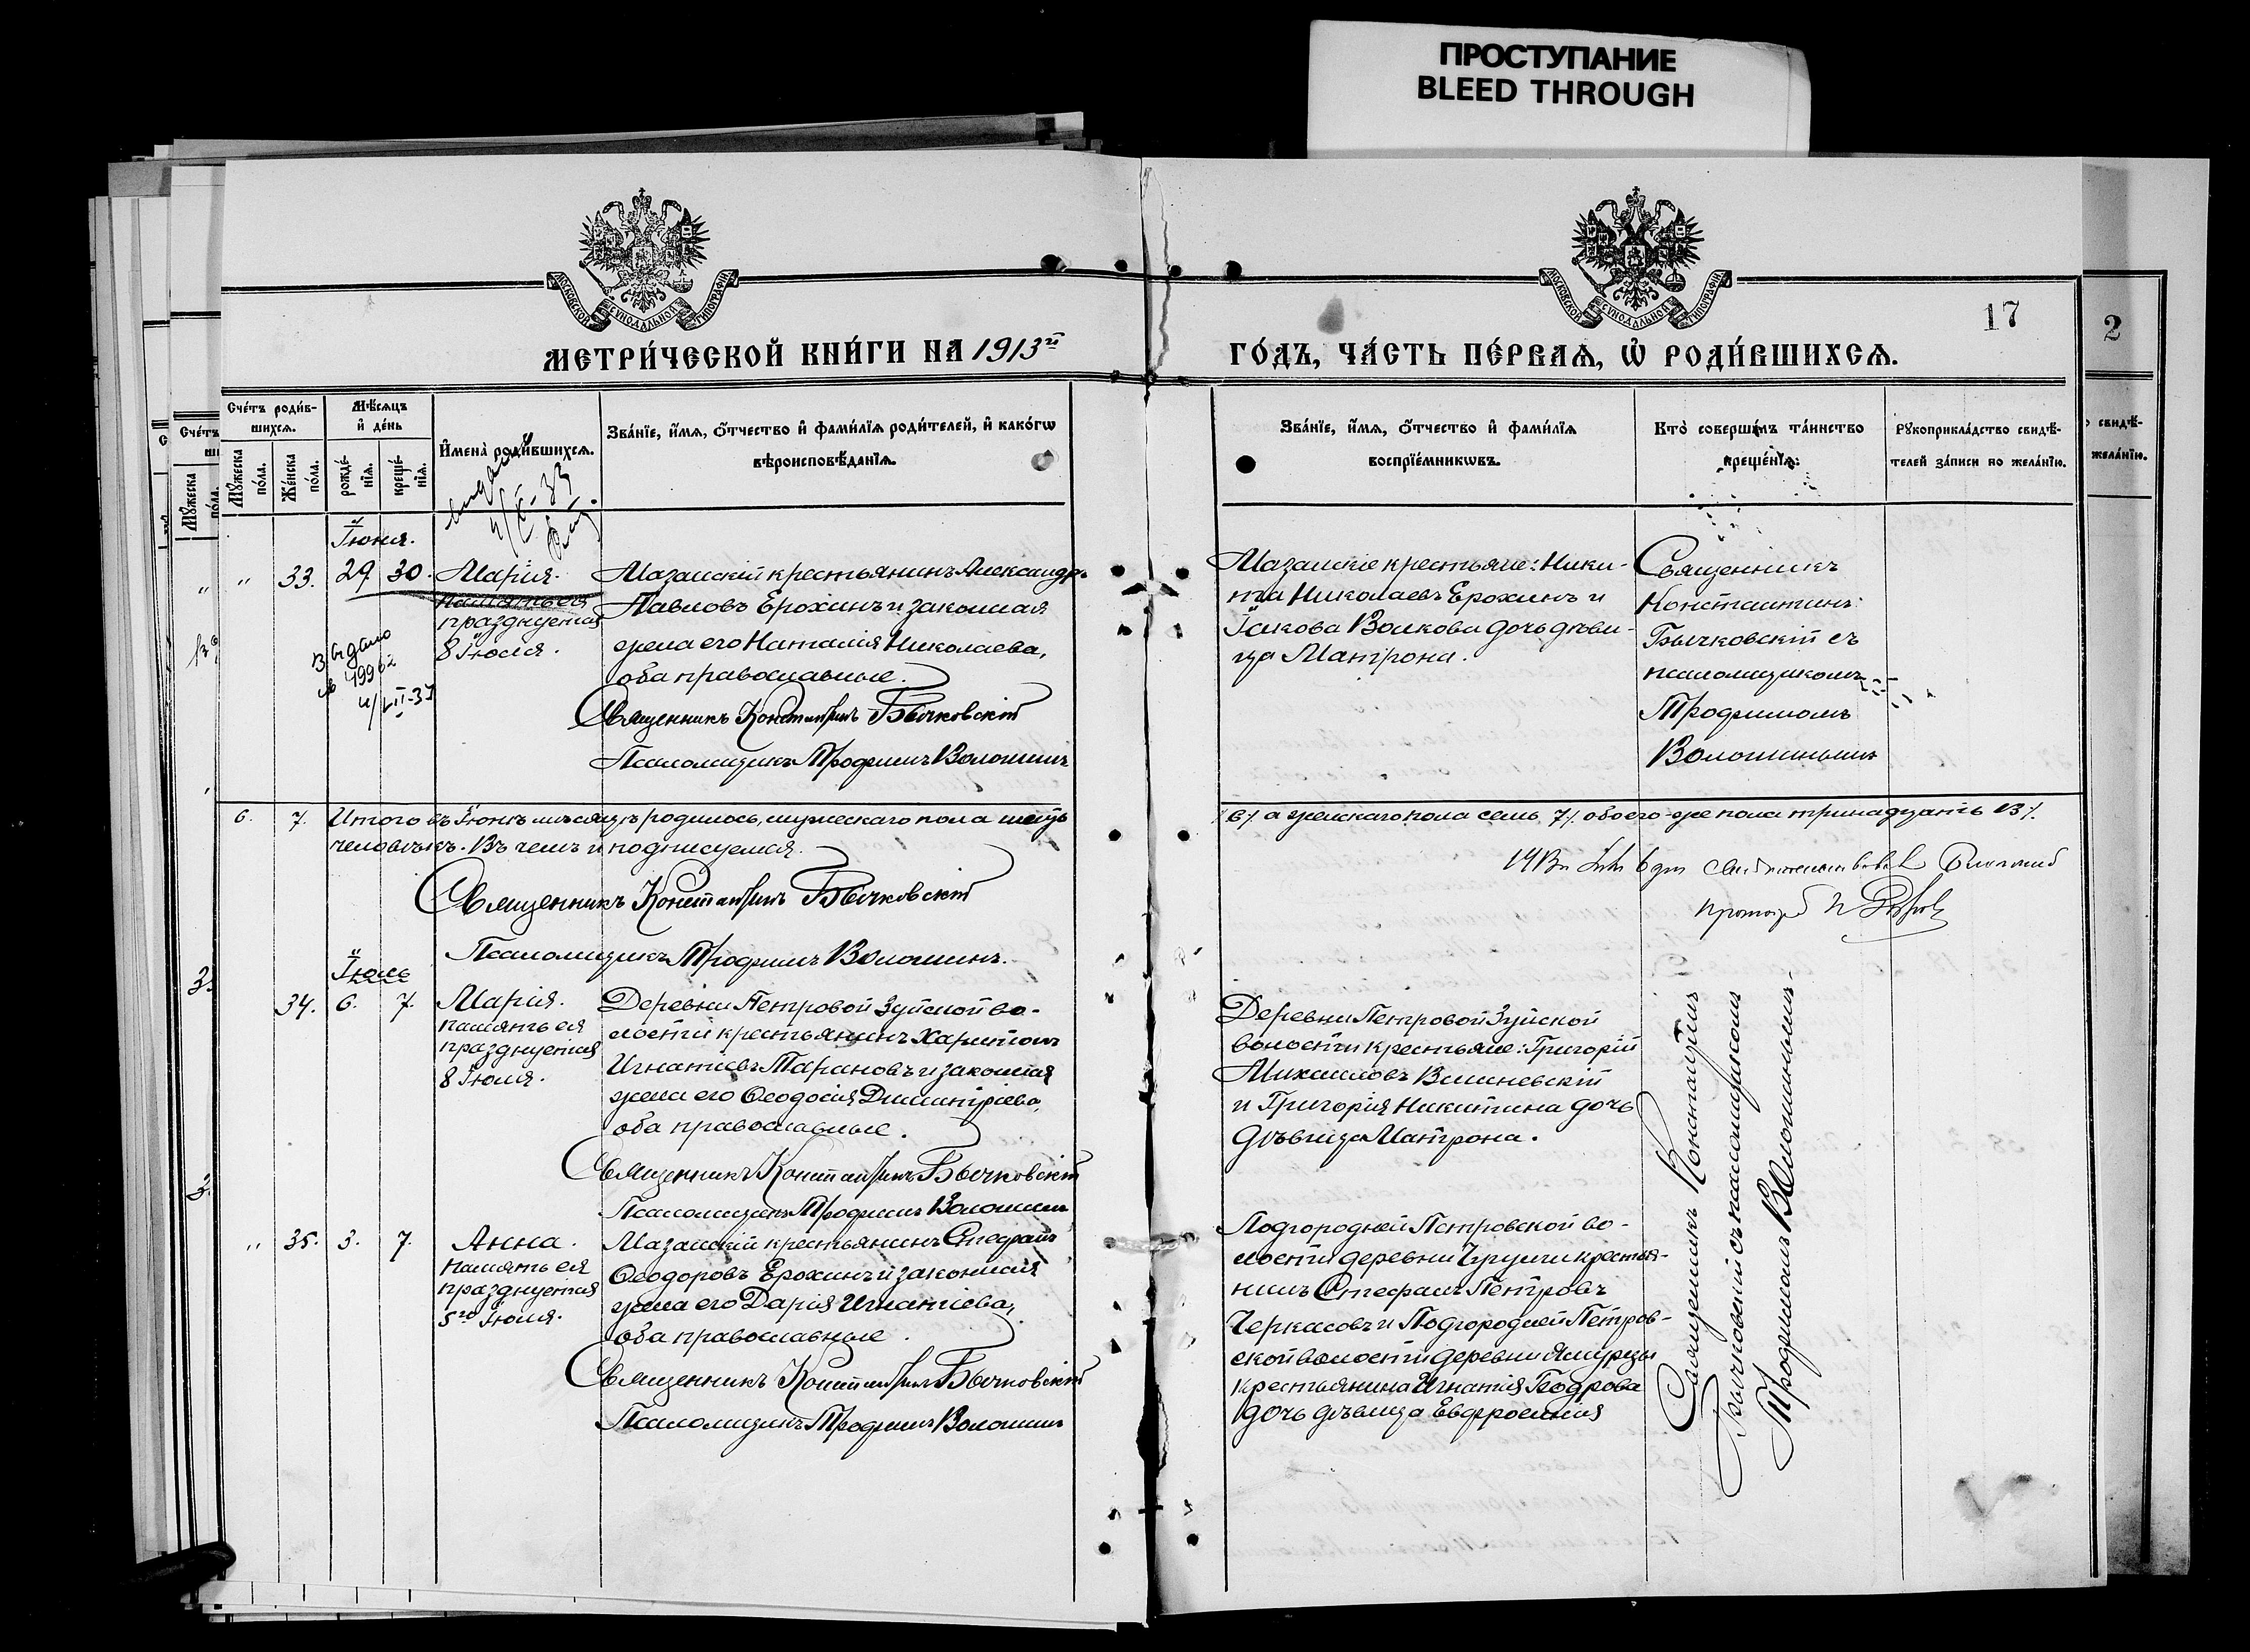 ПРОСТУПАНИЕ
BLEED THROUGH
МОСКОВСКОЙ СѴНОДАЛЬНОЙ ТИПОГРАФІИ
МОСКОВСКОЙ СѴНОДАЛЬНОЙ ТИПОГРАФІИ
17
2
МЕТРИ́ЧЕСКОЙ КНИ́ГИ НА 1913й
ГО́ДЪ, ЧА́СТЬ ПЕ́РВАѦ, Ѡ҆ РОДИ́ВШИХСѦ.
Сче́тъ роди́в-
шихсѧ.
Мꙋ́жеска по́ла.
Же́нска по́ла.
Мѣ́сѧцъ
и҆ де́нь
рожде́-
нїѧ.
креще́-
нїѧ.
И҆мена̀ роди́вшихсѧ.
Зва́нїе, и҆́мѧ, ѻ҆́тчество и҆ фами́лїѧ роди́телей, и҆ како́гѡ
вѣроисповѣ́данїѧ.
Зва́нїе, и҆́мѧ, ѻ҆́тчество и҆ фами́лїѧ
воспрїе́мникѡвъ.
Кто̀ соверши́лъ та́инство
креще́нїѧ:
Рꙋкоприкла́дство свидѣ́-
телей за́писи по жела́нїю.
Іюня.
" 33. 29 30. Марія.
память ея
празднуется
8 Іюля.
Мазанскій крестьянинъ Александръ
Павловъ Ерохинъ и законная
жена его Наталія Николаева,
оба православные.
Священникъ Константинъ Бычковскій
Псаломщикъ Трофимъ Волошинъ
Мазанскіе крестьяне: Ники-
та Николаевъ Ерохинъ и
Іакова Волкова дочь дѣви-
ца Матрона.
Священникъ
Константинъ
Бычковскій съ
псаломщикомъ
Трофимомъ
Волошинымъ
6. 7. Итого въ Іюнѣ мѣсяцѣ родилось, мужескаго пола шесть
/6/ а женскаго пола семь /7/. обоего-же пола тринадцать /13/.
человѣкъ. Въ чемъ и подписуемся.
Священникъ Константинъ Бычковскій
Псаломщикъ Трофимъ Волошинъ.
Іюль
34. 6. 7. Марія.
память ея
празднуется
8 Іюля.
Деревни Петровой Зуйской во-
лости крестьянинъ Харитонъ
Игнатіевъ Тарановъ и законная
жена его Ѳеодосія Димитріева,
оба православные.
Священникъ Константинъ Бычковскій
Псаломщикъ Трофимъ Волошинъ
Деревни Петровой Зуйской
волости крестьяне: Григорій
Михаиловъ Вишневскій
и Григорія Никитина дочь
дѣвица Матрона.
" 35. 3. 7. Анна.
Память ея
празднуется
5го Іюля.
Мазанскій крестьянинъ Стефанъ
Ѳеодоровъ Ерохинъ и законная
жена его Дарія Игнатіева,
оба православные.
Священникъ Константинъ Бычковскій
Псаломщикъ Трофимъ Волошинъ
Подгородней Петровской во-
лости деревни крестья-
нинъ Стефанъ Петровъ
Черкасовъ и Подгородней Петров-
ской волости деревни
крестьянина Игнатія
дочь дѣвица Евфросинія
Священникъ Константинъ
Бычковскій съ псаломщикомъ
Трофимомъ Волошинымъ.